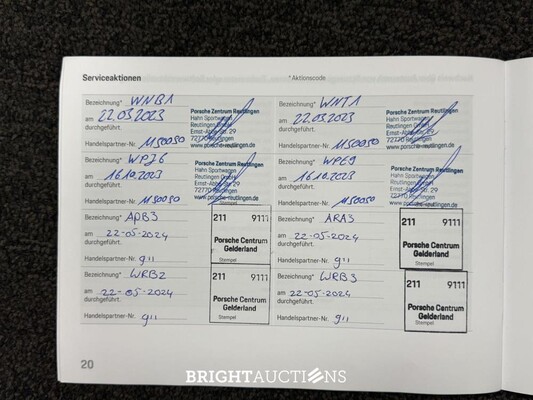 Serviceaktionen
* Aktionscode
Bezeichnung* WNB1
am 22.03.2023
durchgeführt.
Handelspartner-Nr. 1150050
Porsche Zentrum Reutlingen
Hahn Sportwagen
Reutlingen GmbH
Ernst-Abbe-Str. 29
72770 Reutlingen
www.porsche-reutlingen.de
Bezeichnung* WNT1
am 22.03.2023
durchgeführt.
Handelspartner-Nr. 1150050
Porsche Zentrum Reutlingen
Hahn Sportwagen
Reutlingen GmbH
Ernst-Abbe-Str. 29
72770 Reutlingen
www.porsche-reutlingen.de
Bezeichnung* WPJ6
am 16.10.2023
durchgeführt.
Handelspartner-Nr. 1150050
Porsche Zentrum Reutlingen
Hahn Sportwagen
Reutlingen GmbH
Ernst-Abbe-Str. 29
72770 Reutlingen
www.porsche-reutlingen.de
Bezeichnung* WPE9
am 16.10.2023
durchgeführt.
Handelspartner-Nr. 1150050
Porsche Zentrum Reutlingen
Hahn Sportwagen
Reutlingen GmbH
Ernst-Abbe-Str. 29
72770 Reutlingen
www.porsche-reutlingen.de
Bezeichnung* APB3
am 22-05-2024
durchgeführt.
Handelspartner-Nr. 911
211 9111
Porsche Centrum
Gelderland
Stempel
Bezeichnung* ARA3
am 22-05-2024
durchgeführt.
Handelspartner-Nr. 911
211 9111
Porsche Centrum
Gelderland
Bezeichnung* WRB2
am 22-05-2024
durchgeführt.
Handelspartner-Nr. 911
211 9111
Porsche Centrum
Gelderland
Stempel
Bezeichnung* WRB3
am 22-05-2024
durchgeführt.
Handelspartner-Nr. 911
211 9111
Porsche Centrum
Gelderland
Stempel
20
BRIGHTAUCTIONS